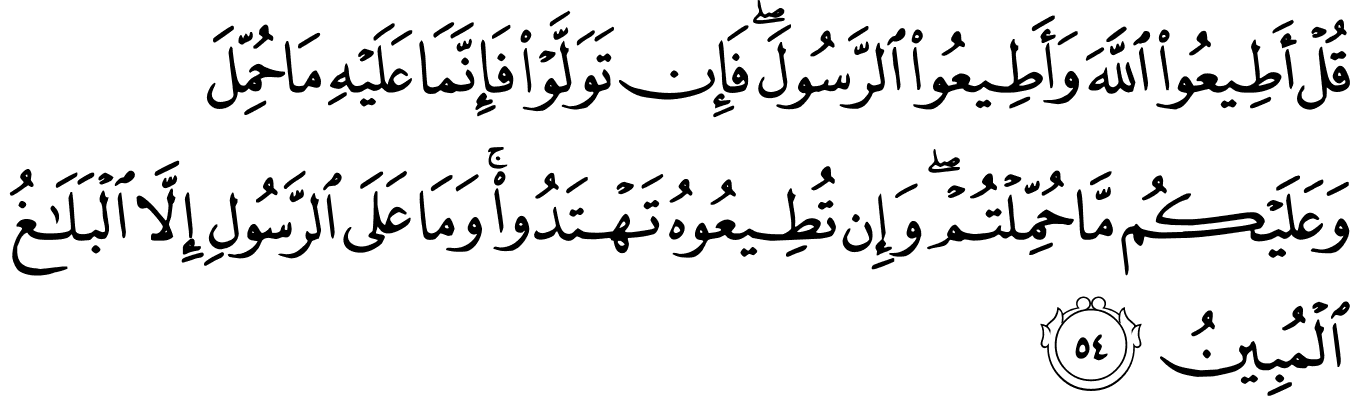 قُلْ أَطِيعُوا۟ ٱللَّهَ وَأَطِيعُوا۟ ٱلرَّسُولَ ۖ فَإِن تَوَلَّوْا۟ فَإِنَّمَا عَلَيْهِ مَا حُمِّلَ
وَعَلَيْكُم مَّا حُمِّلْتُمْ ۖ وَإِن تُطِيعُوهُ تَهْتَدُوا۟ ۚ وَمَا عَلَى ٱلرَّسُولِ إِلَّا ٱلْبَلَـٰغُ
ٱلْمُبِينُ ٥٤